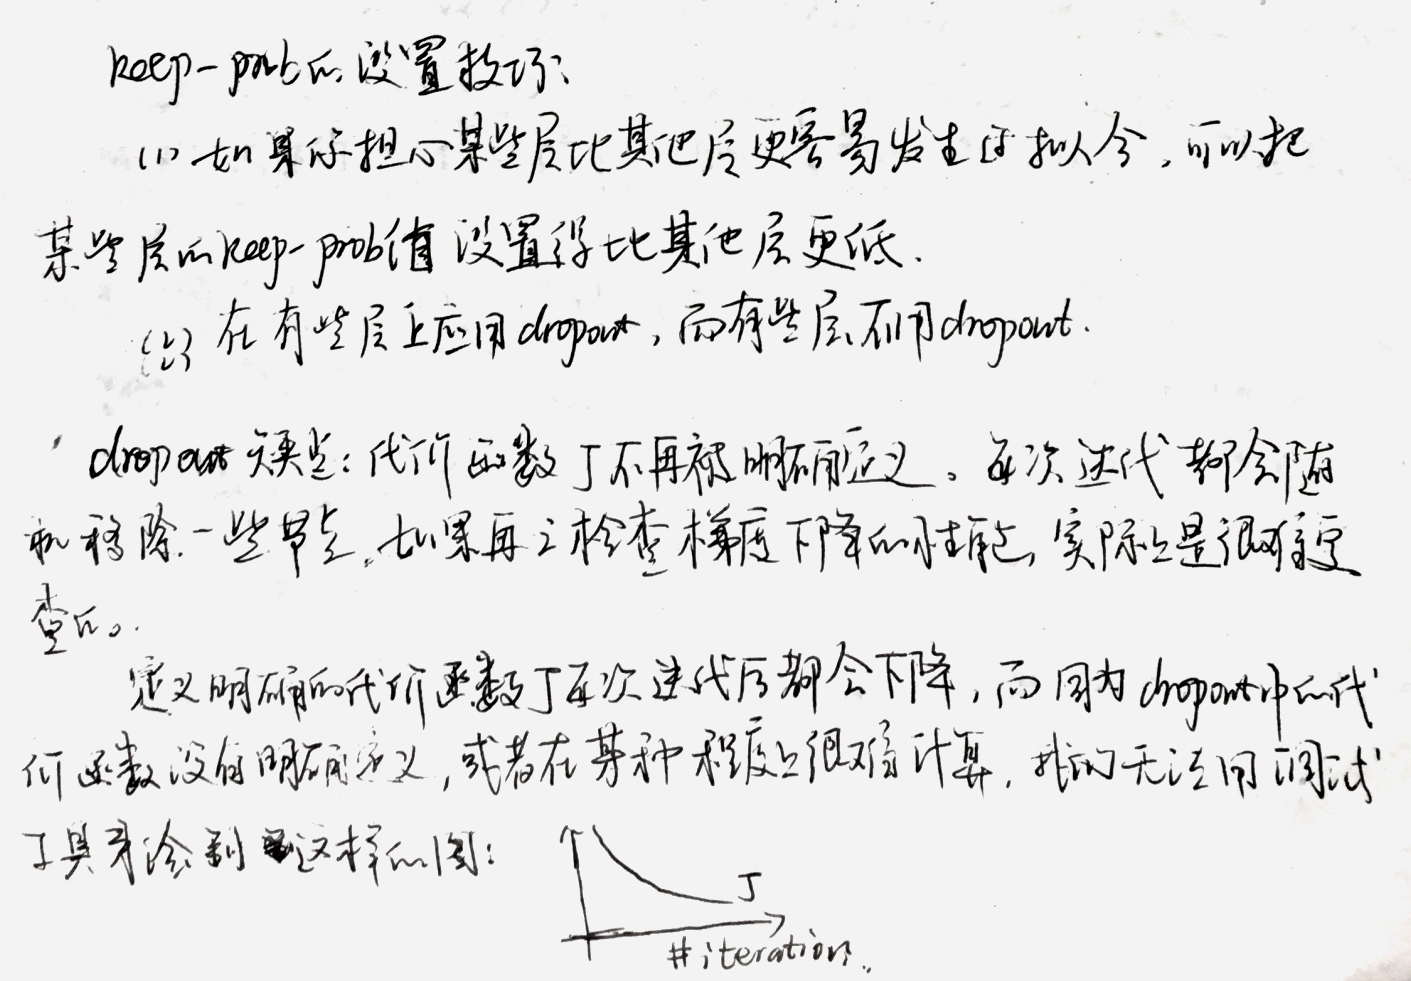 keep-prob的设置技巧:
(1) 如果你担心某些层比其他层更容易发生过拟合,可以把
某些层的keep-prob值设置得比其他层更低.
(2) 在有些层上应用dropout,而有些层不用dropout.
dropout缺点:代价函数J不再被明确定义。每次迭代都会随
机移除一些节点,如果再三检查梯度下降的性能,实际上是很难复
查的。
定义明确的代价函数J每次迭代后都会下降,而因为dropout中的代
价函数没有明确定义,或者在某种程度上很难计算,我们无法用调试
工具来绘制这样的图:
J
#iteration.